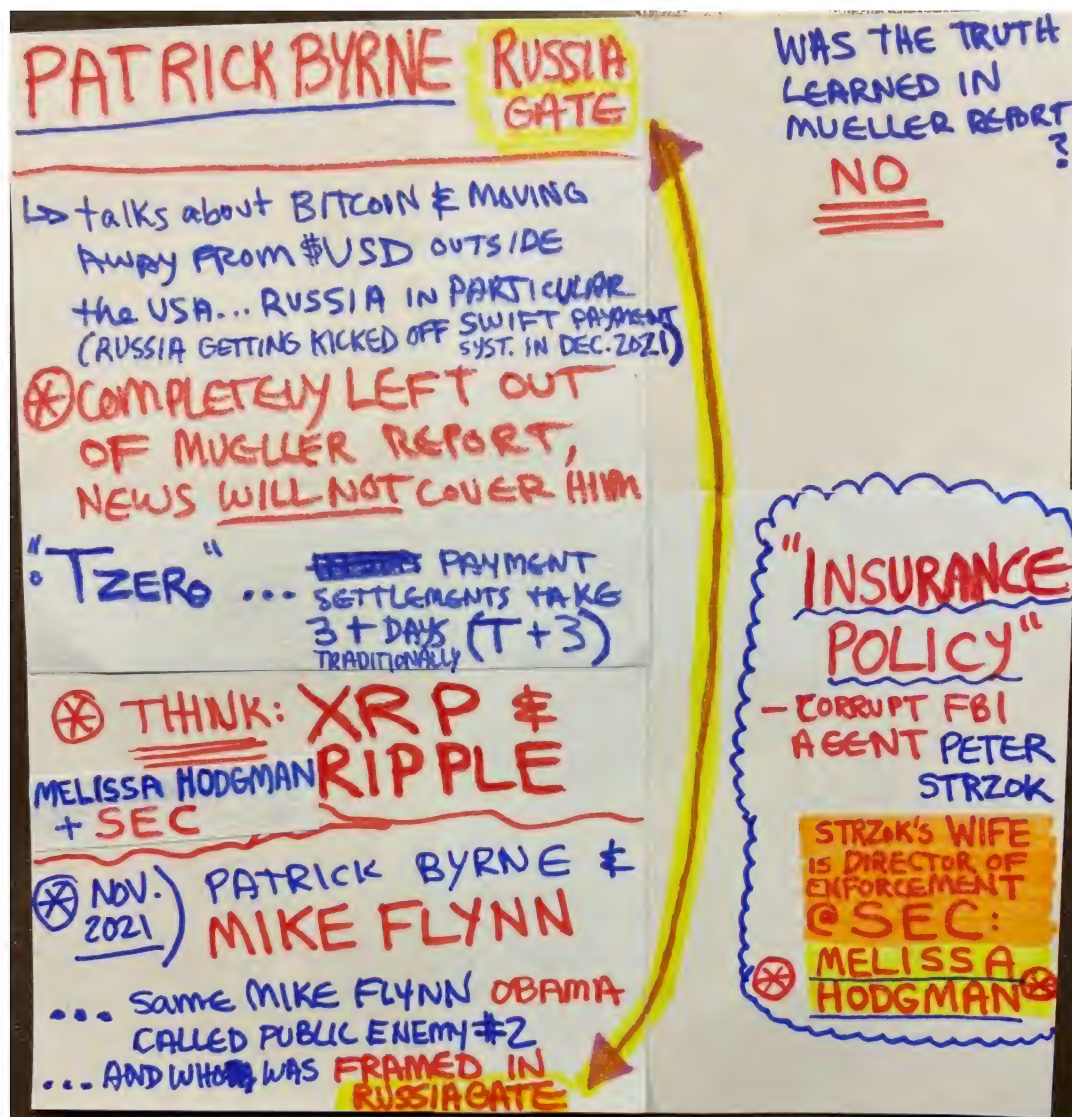 PATRICK BYRNE
RUSSIA
GATE
↳ talks about BITCOIN & MOVING
AWAY FROM $USD OUTSIDE
the USA... RUSSIA IN PARTICULAR
(RUSSIA GETTING KICKED OFF SWIFT PAYMENT
SYST. IN DEC. 2021)
COMPLETELY LEFT OUT
OF MUELLER REPORT,
NEWS WILL NOT COVER HIM
"TZERO" ... PAYMENT
SETTLEMENTS TAKE
3+ DAYS (T+3)
TRADITIONALLY
THINK: XRP &
RIPPLE
MELISSA HODGMAN
+ SEC
NOV.
2021) PATRICK BYRNE &
MIKE FLYNN
... same MIKE FLYNN OBAMA
CALLED PUBLIC ENEMY #2
... AND WHO WAS FRAMED IN
RUSSIAGATE
WAS THE TRUTH
LEARNED IN
MUELLER REPORT
?
NO
"INSURANCE
POLICY"
- CORRUPT FBI
AGENT PETER
STRZOK
STRZOK'S WIFE
IS DIRECTOR OF
ENFORCEMENT
@ SEC:
MELISSA
HODGMAN